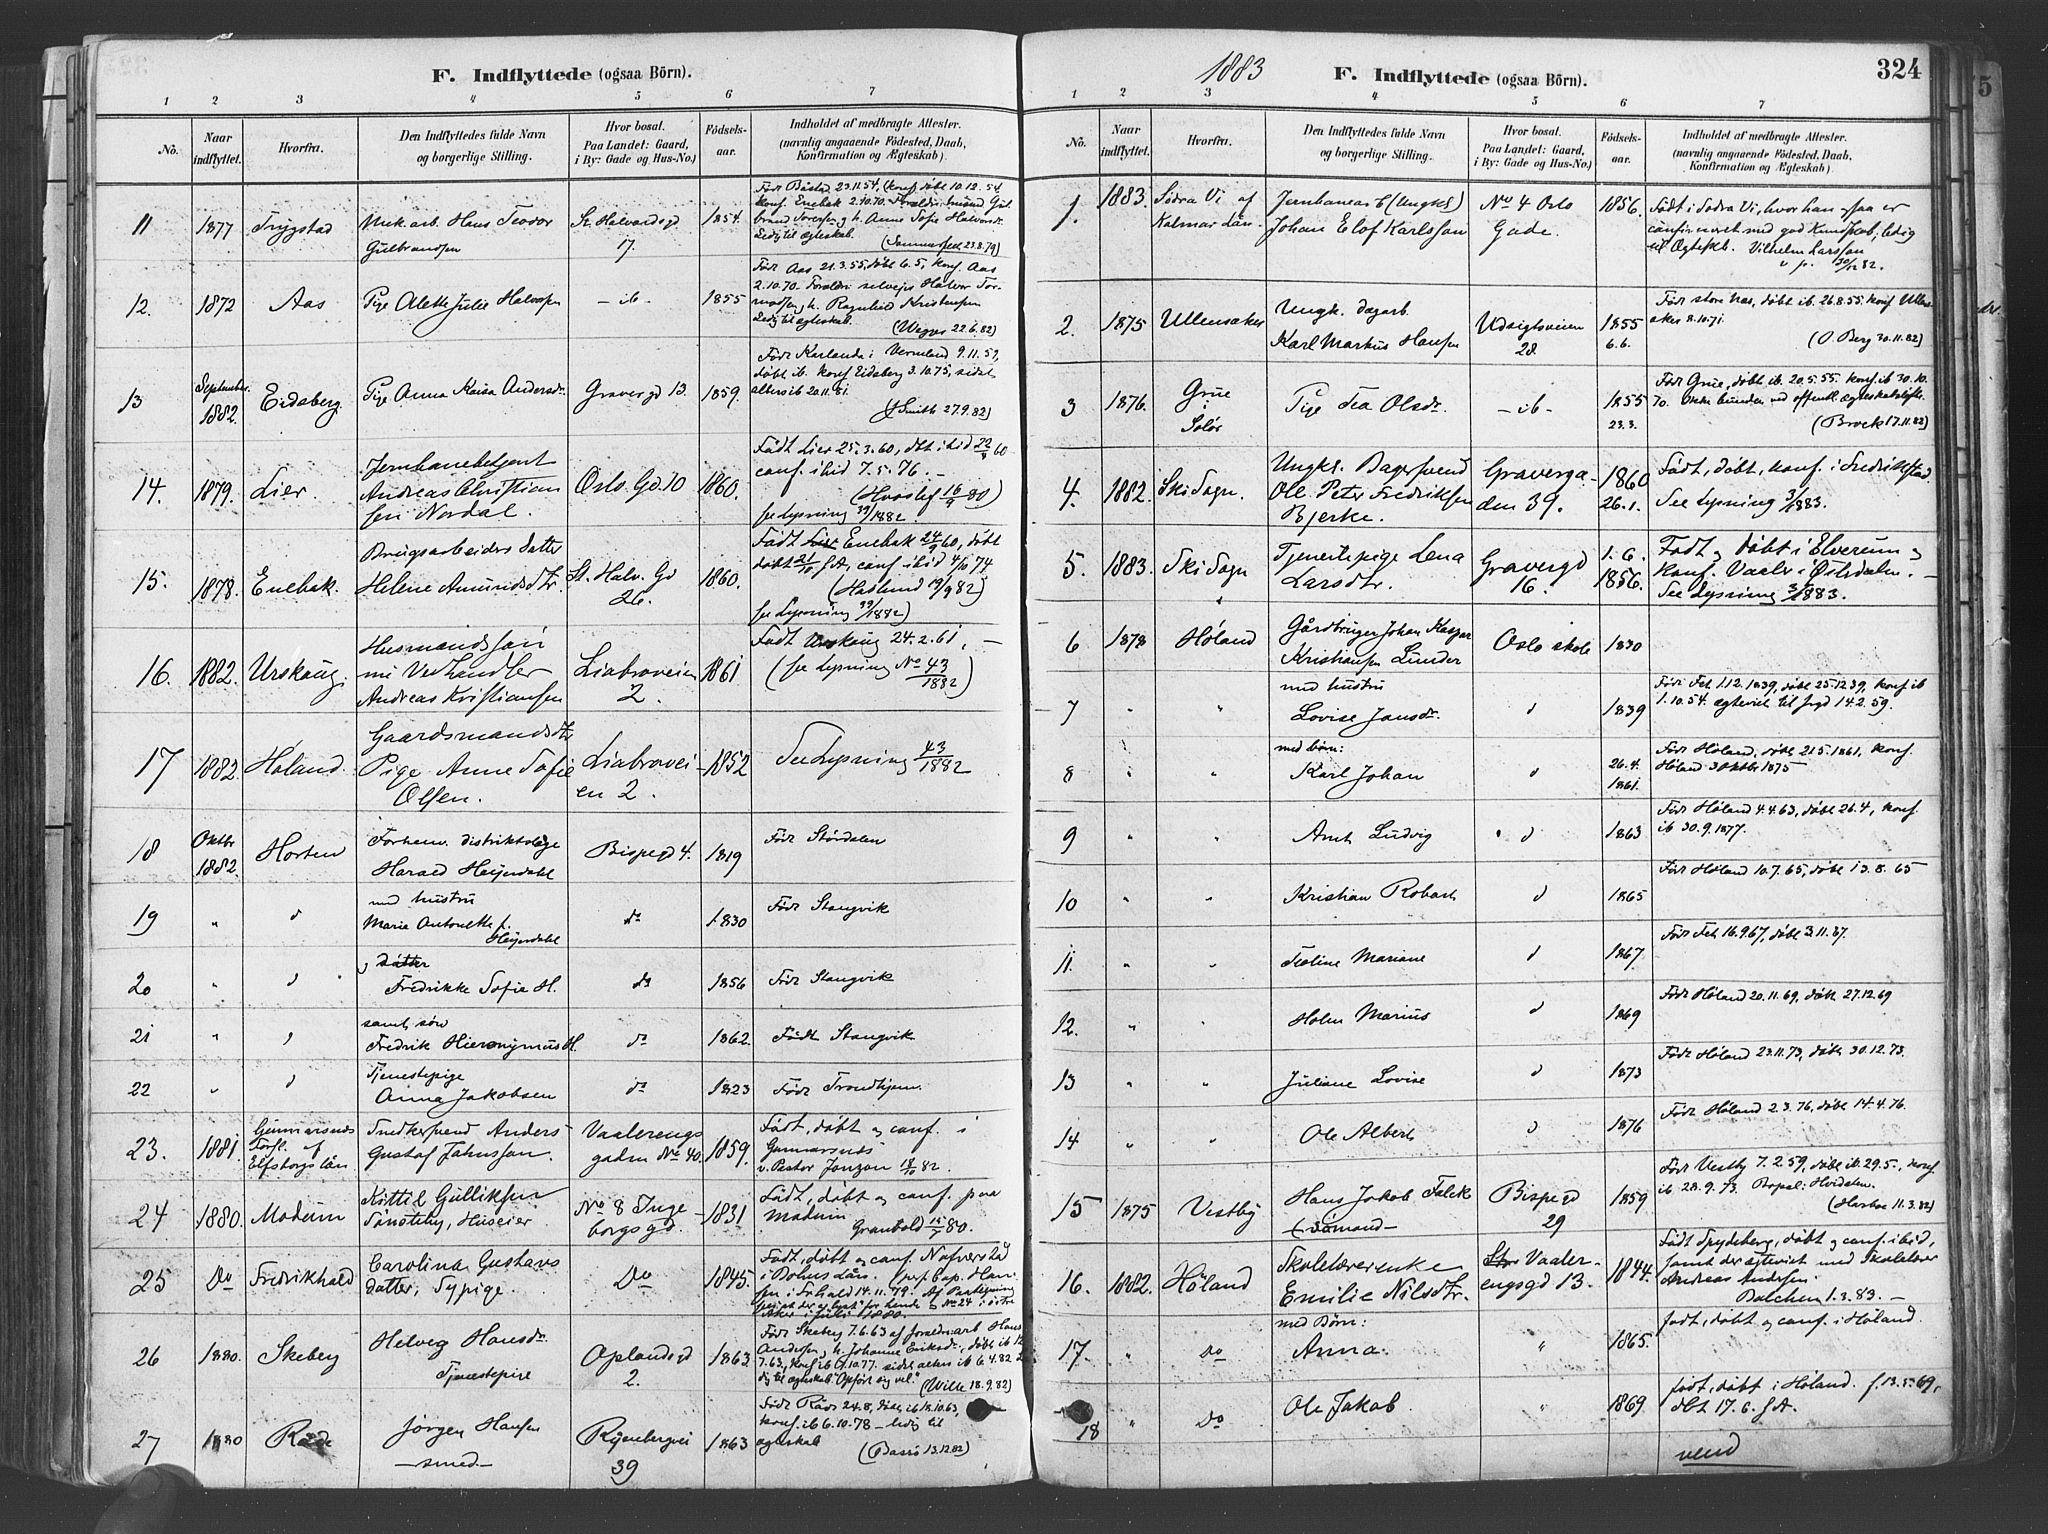 F. Indflyttede (ogsaa Börn).
1 2 3 4 5 6 7
No.
Naar
indflyttet.
Hvorfra.
Den Indflyttedes fulde Navn
og borgerlige Stilling.
Hvor bosat.
Paa Landet: Gaard,
i By: Gade og Hus-No.)
Födsels-
aar.
Indholdet af medbragte Attester.
(navnlig angaaende Födested, Daab,
Konfirmation og Ægteskab).
11 1877 Trygstad
Mek. arb. Hans Teodor
Gulbrandsen
St. Halvardsgd
17.
1854.
Født Båstad 23.11.54, døbt 10.12.54
konf. Enebak 2.10.70. Forældre
Ledig til ægteskab.
12. 1872 Aas
Pige Olette Julie Halvorsen
-ib-
1855
Født Aas 21.3.55, døbt 6.5, konf. Aas
2.10.70.
Ledig til ægteskab.
22.6.82)
13 September
1882.
Eidsberg
Pige Anna Kaisa Andersdr.
Gravergd 13.
1859.
Født Karlanda i Vermland 9.11.59,
døbt ib. konf Eidsberg 3.10.75, sidst
alters ib 20.11.81.
(Smith 27.9.82)
14. 1879. Lier.
Jernbanebetjent
Andreas Christian
sen Nordal.
Oslo Gd. 10
1860.
Født Lier 25.3.60, dbt ibid
conf. ibid 7.5.76. –
(Hvoslef 16/9 80)
se Lysning 39/1882.
15. 1878. Enebak.
Brugsarbeiders Datter
Helene Amundsdtr.
St. Halv. Gd
26.
1860.
Født Enebak 24/9 60, døbt
conf ibid 4/10 74
(Hadlund 19/9 82)
se Lysning 39/1882)
16. 1882. Urskoug.
Husmandssøn
nu Vedhandler
Andreas Kristiansen
Liabroveien
2.
1861
Født Urskoug 24.2.61, –
(se Lysning No 43/1882)
17 1882. Høland.
Gaardsmandsdtr
Pige Anne Sofie
Olsen.
Liabrovei-
en 2.
1852
See Lysning 43/1882
18 Oktbr
1882.
Horten
Forhenv. distriktslæge
Harald Heyerdahl
Bispegd 4.
1819
Født Størdalen
19 " d
med hustru
Marie Antonette f.
Heyerdahl
do
1830
Født Stangvik
20 " d
og datter
Fredrikke Sofie H.
do
1856
Født Stangvik
21 " d
samt søn
Fredrik Hieronymus H.
do
1862.
Født Stangvik
22 " d
Tjenestepige
Anna Jakobsen
do
1823
Født Trondhjem.
23. 1881.
Gunnarsnäs
Forsl. af
Elfsborgs län
Snedkersvend Anders
Gustaf Johnsson.
Vaalerengs
gaden No 40.
1859.
Født, døbt og conf. i
Gunnarsnäs
v. Pastor Jonzon 18/10 82.
24 1880. Modum
Kittil Gulliksen
Huseier
No 8 Inge
borgs gd.
1831
Født, døbt og conf. paa
Modum
25 Do Fredrikhald
Carolina Gustavs
datter, Sypige.
Do
1845.
Født, døbt og conf.
i Bohus Län.
26 1880. Skeberg
Helveg Hansdr.
Tjenestepige
Oplandsgd
2.
1863
Født Skeberg 7.6.63 af forældre: arb Hans
Andersen, h. Johanne Eriksdr, døbt ib 12
7.63, konf ib 10.77. sidst alters ib 6.4.82
"Opført sig vel."
(Wille 18.9.82)
27 1880 Råde
Jørgen Hansen
–smed–
Ryenbergvei
39
1863
Født Råde 24.8, døbt ib 10.63,
konf. ib 6.10.78 – ledig til
ægteskab
(Bassø 13.12.82)
1883
F. Indflyttede (ogsaa Börn).
324
1 2 3 4 5 6 7
No.
Naar
indflyttet.
Hvorfra.
Den Indflyttedes fulde Navn
og borgerlige Stilling.
Hvor bosat.
Paa Landet: Gaard,
i By: Gade og Hus-No.)
Födsels-
aar.
Indholdet af medbragte Attester.
(navnlig angaaende Födested, Daab,
Konfirmation og Ægteskab).
1. 1883.
Södra Vi af
Kalmar Län.
Jernbanearb (Ungkl)
Johan Elof Karlsson
No 4 Oslo
Gade.
1856.
Født i Södra Vi, hvor han er
confirmeret med god Kundskab, ledig
til Ægteskb. Vilhelm Larsson
30/12 82.
2. 1875 Ullensaker
Ungk. dagarb.
Karl Markus Hansen
Udsigtsveien
28
1855
6.6.
Født store Nas, døbt ib. 26.8.55, konf Ullen-
saker 8.10.71.
(O. Berg 30.11.82)
3 1876.
Grue
i
Solør
Pige Tea Olsdr.
-ib-
1855
23.3.
Født Grue, døbt ib. 20.5.55. konf. ib 30.10.
70. Ikke bunden ved offentl. ægteskabsløfte
(Brock 17.11.82)
4. 1882. Ski Sogn.
Ungkl. Bagersvend
Ole Peter Fredriksen
Bjerke.
Graverga-
den 39.
1860
26.1.
Født, døbt, konf. i Fredrikstad
See Lysning 3/1883.
5. 1883. Ski Sogn
Tjenestepige Lena
Larsdtr.
Gravergd
16.
1.6.
1856.
Født og døbt i Elverum og
konf. Vaaler i Østerdalen. –
See Lysning 3/1883.
6 1878 Høland
Gårdbruger Johan Kaspar
Kristiansen Lunder
Oslo skole
1830
7 " "
med hustru
Lovise Jansdr.
d
1839
Født Fet 1.12.1839, døbt 25.12.39, konf ib
1.10.54. ægteviet til 14.2.59.
8 " "
med børn:
Karl Johan
d
26.4.
1861.
Født Høland, døbt 21.5.1861, konf.
Høland 3 Oktbr 1875
9 " "
Arnt Ludvig
d
1863
Født Høland 4.4.63, døbt 26.4, konf.
ib 30.9.1877.
10 " "
Kristian Robart
d
1865
Født Høland 10.7.65, døbt 13.8.65
11. " "
Teoline Mariane
d
1867.
Født Fet 16.9.67, døbt 3.11.67.
12. " "
Holm Marius
d
1869
Født Høland 20.11.69, døbt 27.12.69
13 " "
Juliane Lovise
d
1873
Født Høland 23.11.73, døbt 30.12.73.
14 " "
Ole Albert
d
1876
Født Høland 2.3.76, døbt 14.4.76.
15 1875 Vestby
Hans Jakob Falck
(Sømand–
Bispegd
29
1859
Født Vestby 7.2.59, døbt ib. 29.5., konf
ib 28.9.73.
(Harboe 11.3.82)
16. 1882. Høland
Skolelærerenke
Emilie Nilsdtr.
Vaaler-
engsgd 13.
1844.
Født Spydeberg, døbt og conf. ibid,
samt der ægteviet med Skolelærer
Andreas Andersen.
Balchen 1.3.83. –
17. " Do
med Børn:
Anna.
"
1865.
født, døbt og conf. i Høland.
18 " Do
Ole Jakob
"
1869
født, døbt i Høland. f. 13.5.69,
dbt 17.6. s. A.
vend